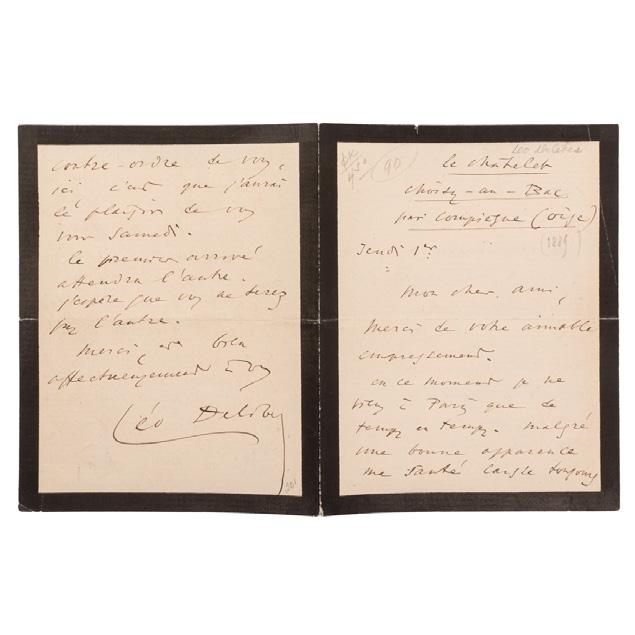 Léo Delibes
90
le chatelet
choisy-au-Bac
par compiègne (oise)
(1889)
Jeudi 1er
Mon cher ami,
Merci de votre aimable
empressement.
en ce moment je ne
viens à Paris que de
temps en temps. malgré
une bonne apparence
ma santé laisse toujours
contre-ordre de vous,
ici c'est que j'aurai
le plaisir de vous
voir samedi.
le premier arrivé
attendra l'autre.
j'espère que vous ne serez
pas l'autre.
merci, et bien
affectueusement à vous
Léo Delibes
201